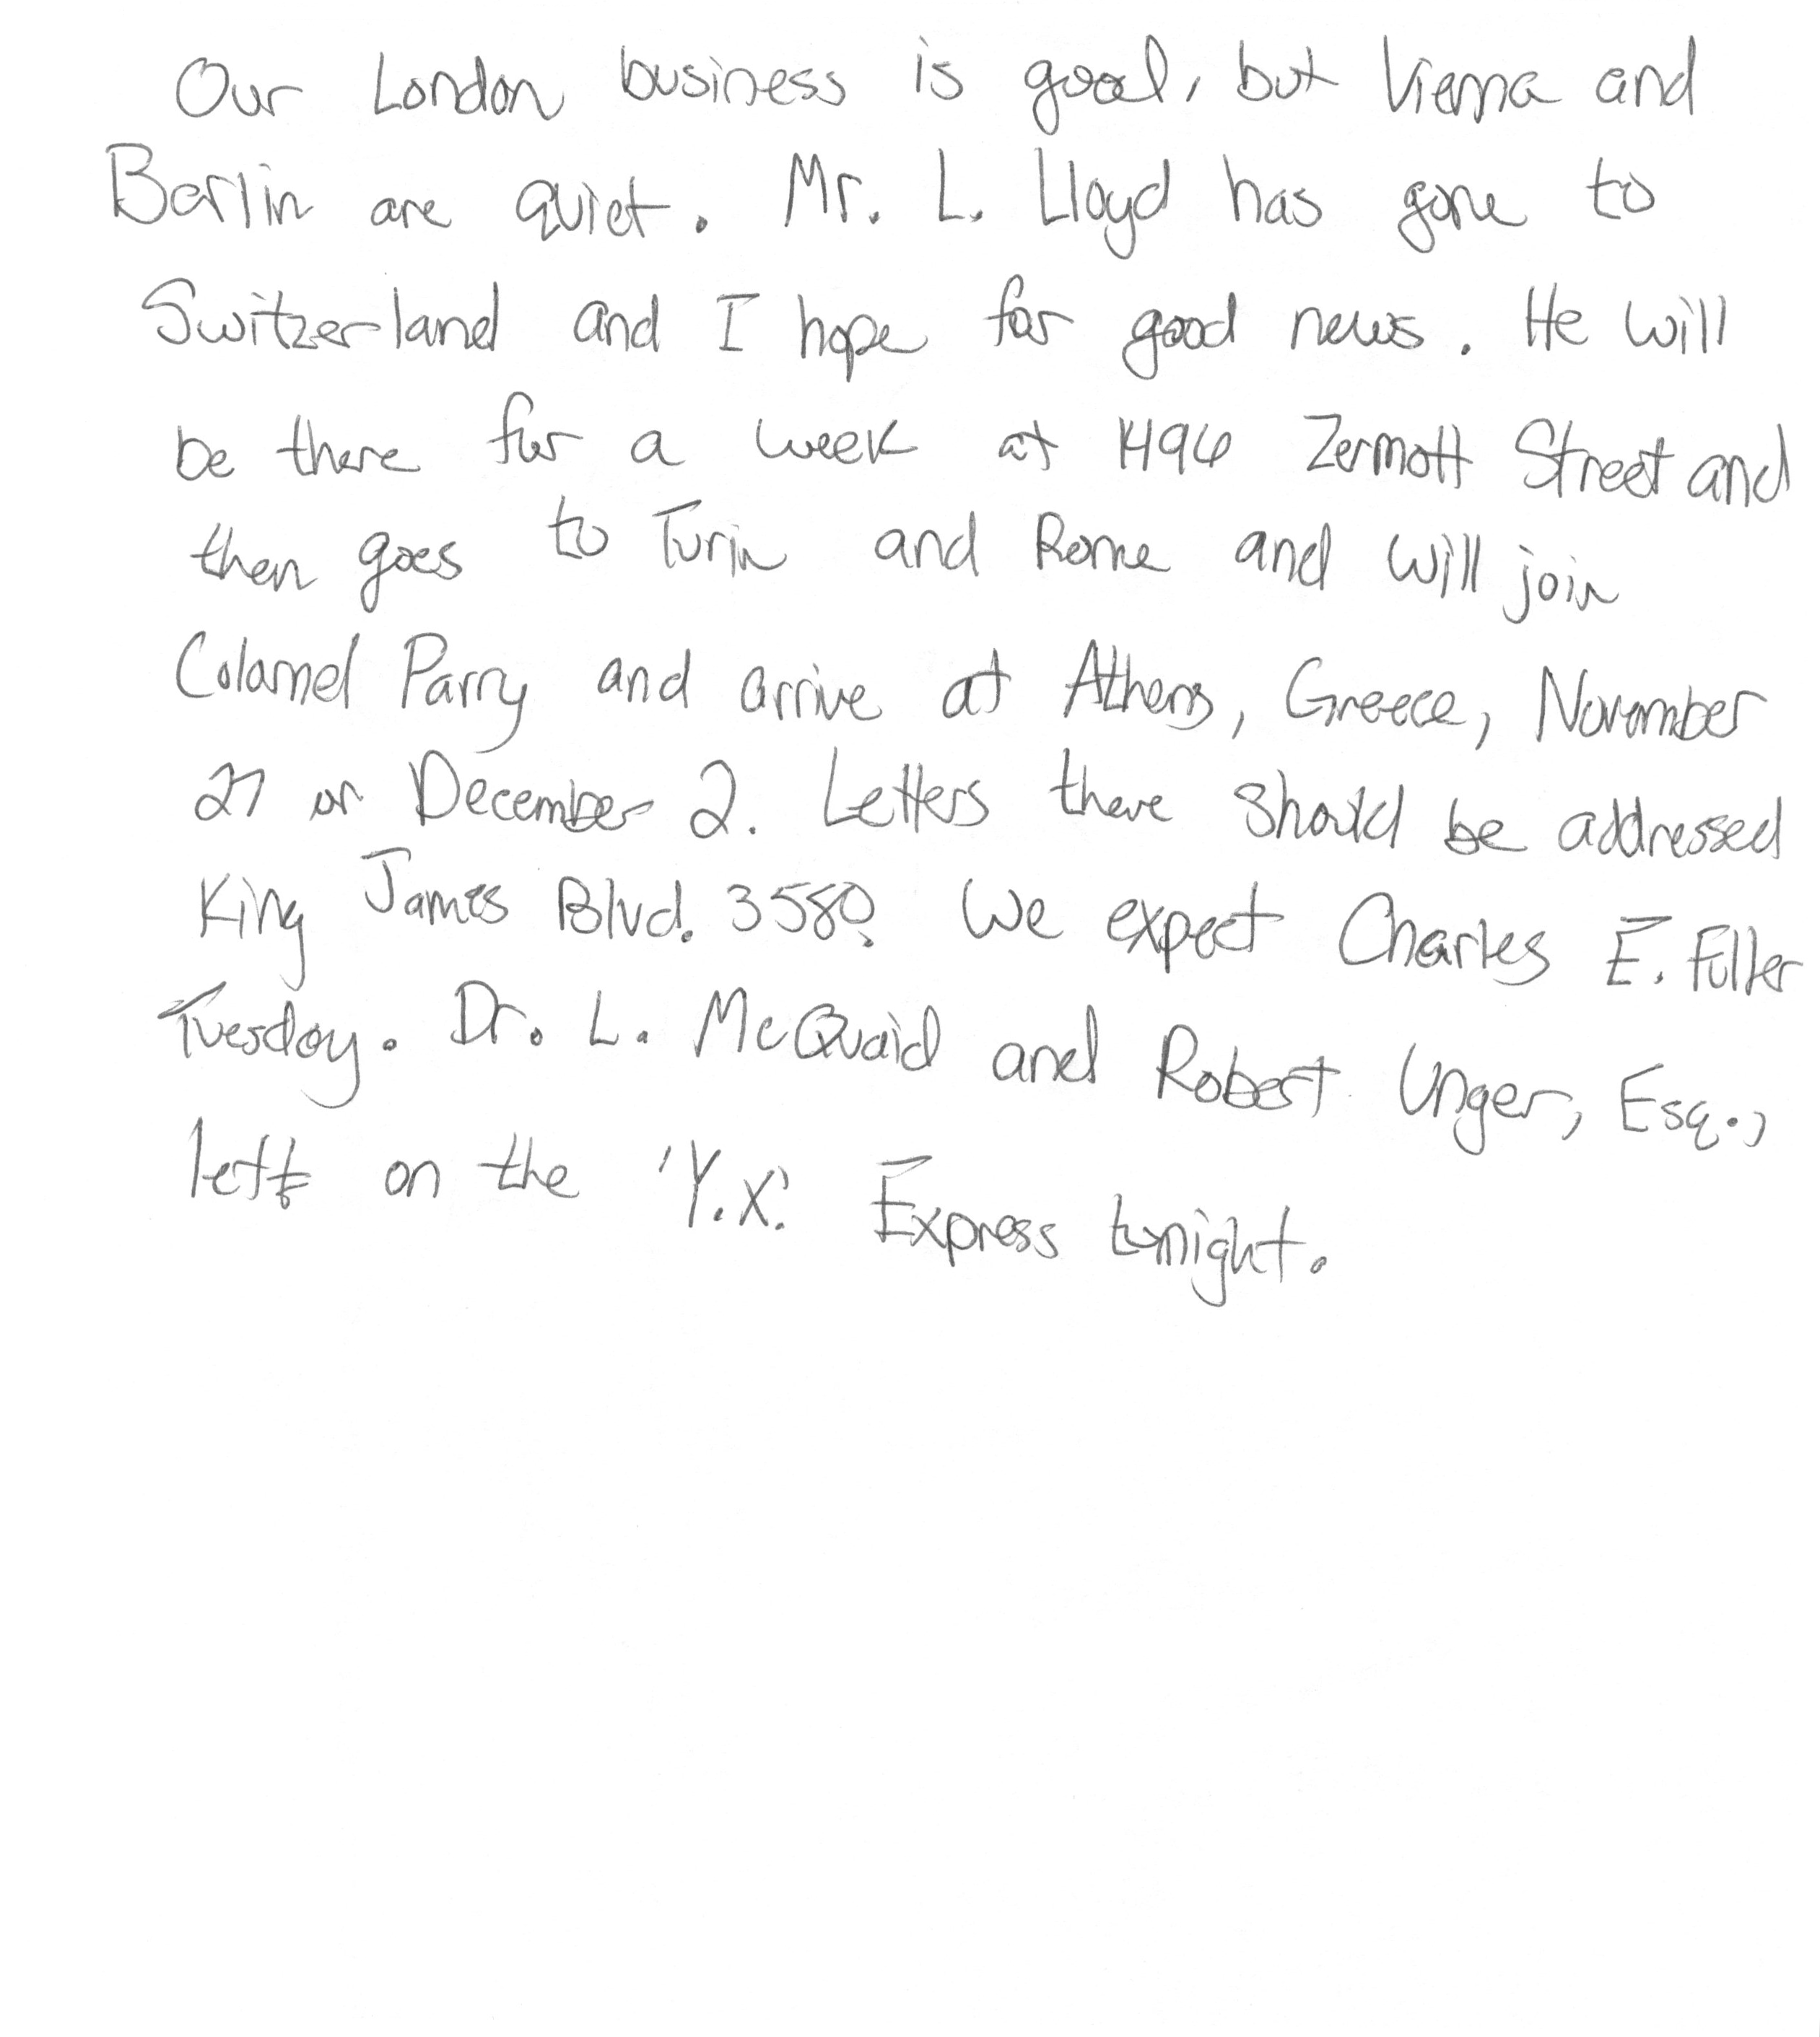 Our London business is good, but Vienna and
Berlin are quiet. Mr. L. Lloyd has gone to
Switzerland and I hope for good news. He will
be there for a week at 1496 Zermott Street and
then goes to Turin and Rome and will join
Colonel Parry and arrive at Athens, Greece, November
27 or December 2. Letters there should be addressed
King James Blvd. 3580. We expect Charles E. Fuller
Tuesday. Dr. L. McQuaid and Robert Unger, Esq.,
left on the 'Y.X.' Express tonight.